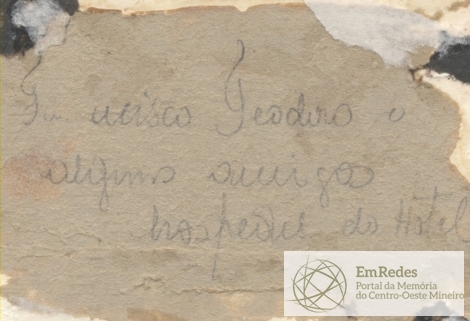 Francisco Teodoro e
alguns amigos
hospedes do Hotel
EmRedes
Portal da Memória
do Centro-Oeste Mineiro